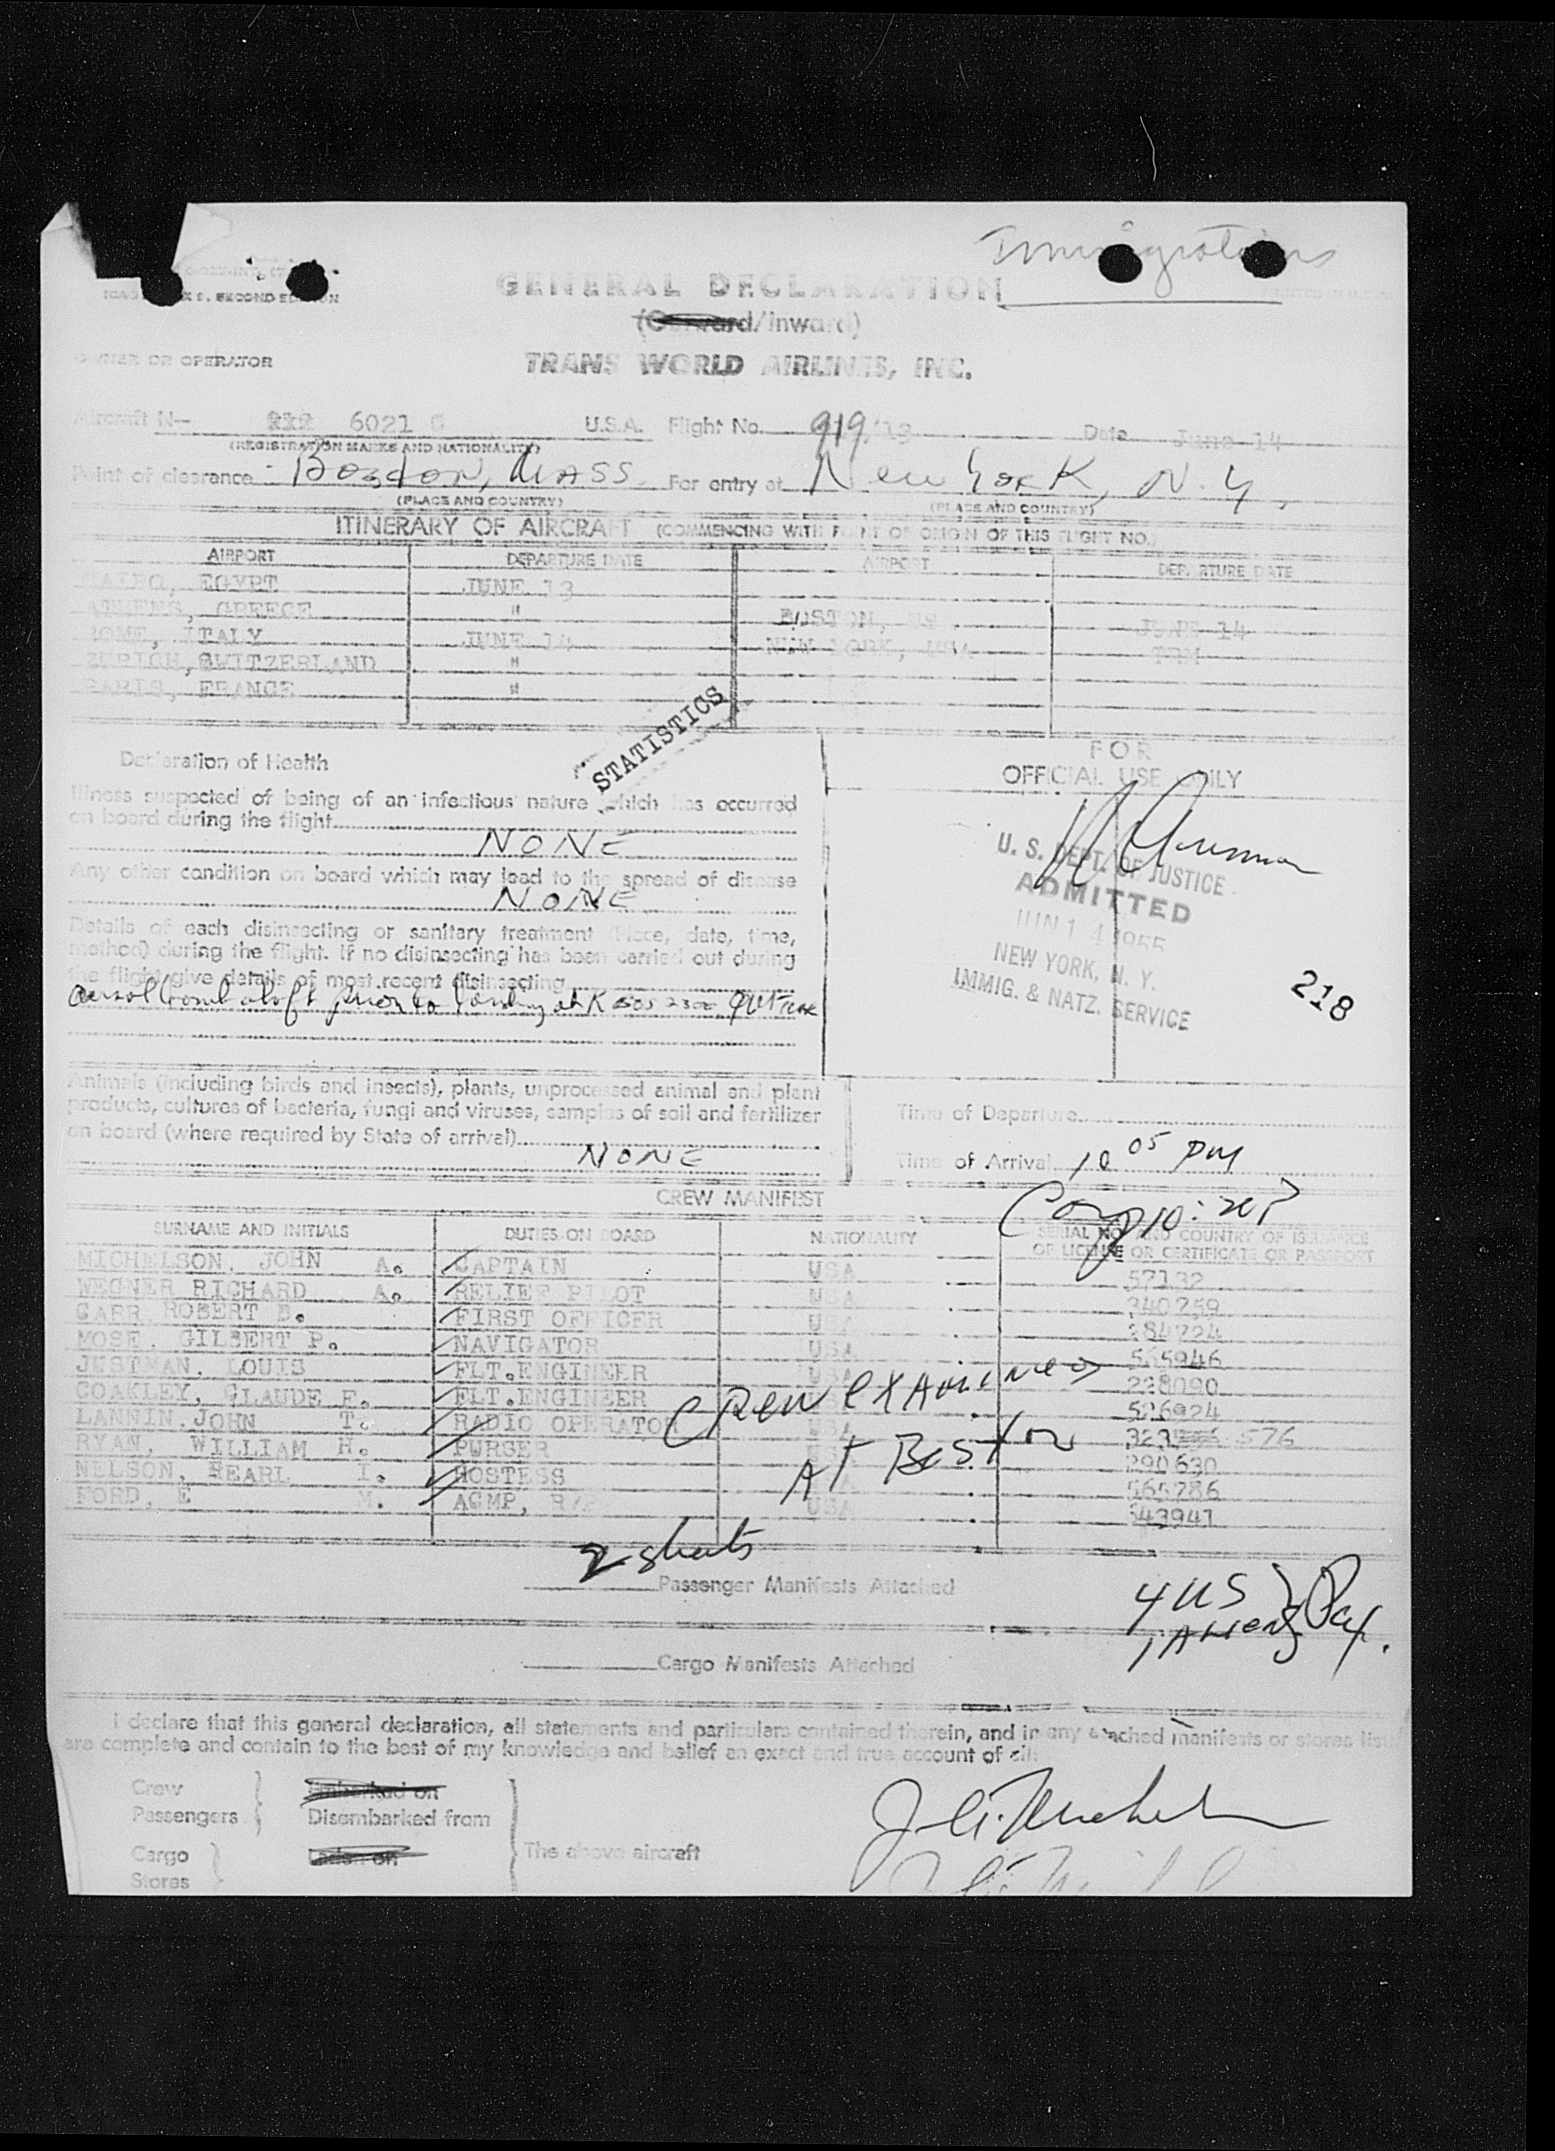 Immigrations
SECOND EDITION
GENERAL DECLARATION
(Outward/Inward)
OWNER OR OPERATOR TRANS WORLD AIRLINES, INC.
Aircraft N— 6021 C U.S.A. Flight No. 919/13 Date June 14
(REGISTRATION MARKS AND NATIONALITY)
Point of clearance Boston, Mass. For entry at New York, N.Y.
(PLACE AND COUNTRY) (PLACE AND COUNTRY)
ITINERARY OF AIRCRAFT (COMMENCING WITH POINT OF ORIGIN OF THIS FLIGHT NO.)
AIRPORT DEPARTURE DATE AIRPORT DEPARTURE DATE
CAIRO, EGYPT JUNE 13
ATHENS, GREECE " BOSTON, US JUNE 14
ROME, ITALY JUNE 14 NEW YORK, USA TRM
ZURICH, SWITZERLAND "
PARIS, FRANCE "
STATISTICS
Declaration of Health
FOR
OFFICIAL USE ONLY
Illness suspected of being of an infectious nature which has occurred
on board during the flight
NONE
Any other condition on board which may lead to the spread of disease
NONE
Details of each disinsecting or sanitary treatment (Place, date, time,
method) during the flight. If no disinsecting has been carried out during
the flight give details of most recent disinsecting
aerosol bomb aloft prior to landing at
U. S. DEPT. OF JUSTICE
ADMITTED
JUN 14 1955
NEW YORK, N. Y.
IMMIG. & NATZ. SERVICE
218
Animals (including birds and insects), plants, unprocessed animal and plant
products, cultures of bacteria, fungi and viruses, samples of soil and fertilizer
on board (where required by State of arrival)
NONE
Time of Departure
Time of Arrival 10 05 PM
CREW MANIFEST
SURNAME AND INITIALS DUTIES ON BOARD NATIONALITY SERIAL NO. AND COUNTRY OF ISSUANCE
OF LICENSE OR CERTIFICATE OR PASSPORT
MICHELSON, JOHN A. CAPTAIN USA 57132
WEGNER RICHARD A. RELIEF PILOT USA 340259
CARR ROBERT B. FIRST OFFICER USA 284724
MOSE, GILBERT P. NAVIGATOR USA 565946
JUSTMAN, LOUIS FLT.ENGINEER USA 228090
COAKLEY, CLAUDE F. FLT.ENGINEER 526924
LANNIN, JOHN T. RADIO OPERATOR USA 576
RYAN, WILLIAM H. PURSER 290630
NELSON, PEARL I. HOSTESS 565786
FORD, E M. ACMP, USA 343941
Crew examined
At Boston
2 sheets
Passenger Manifests Attached
4 US
1 Aliens } Pax.
Cargo Manifests Attached
I declare that this general declaration, all statements and particulars contained therein, and in any attached manifests or stores list
are complete and contain to the best of my knowledge and belief an exact and true account of all:
Crew Embarked on
Passengers Disembarked from
Cargo Laden on The above aircraft
Stores